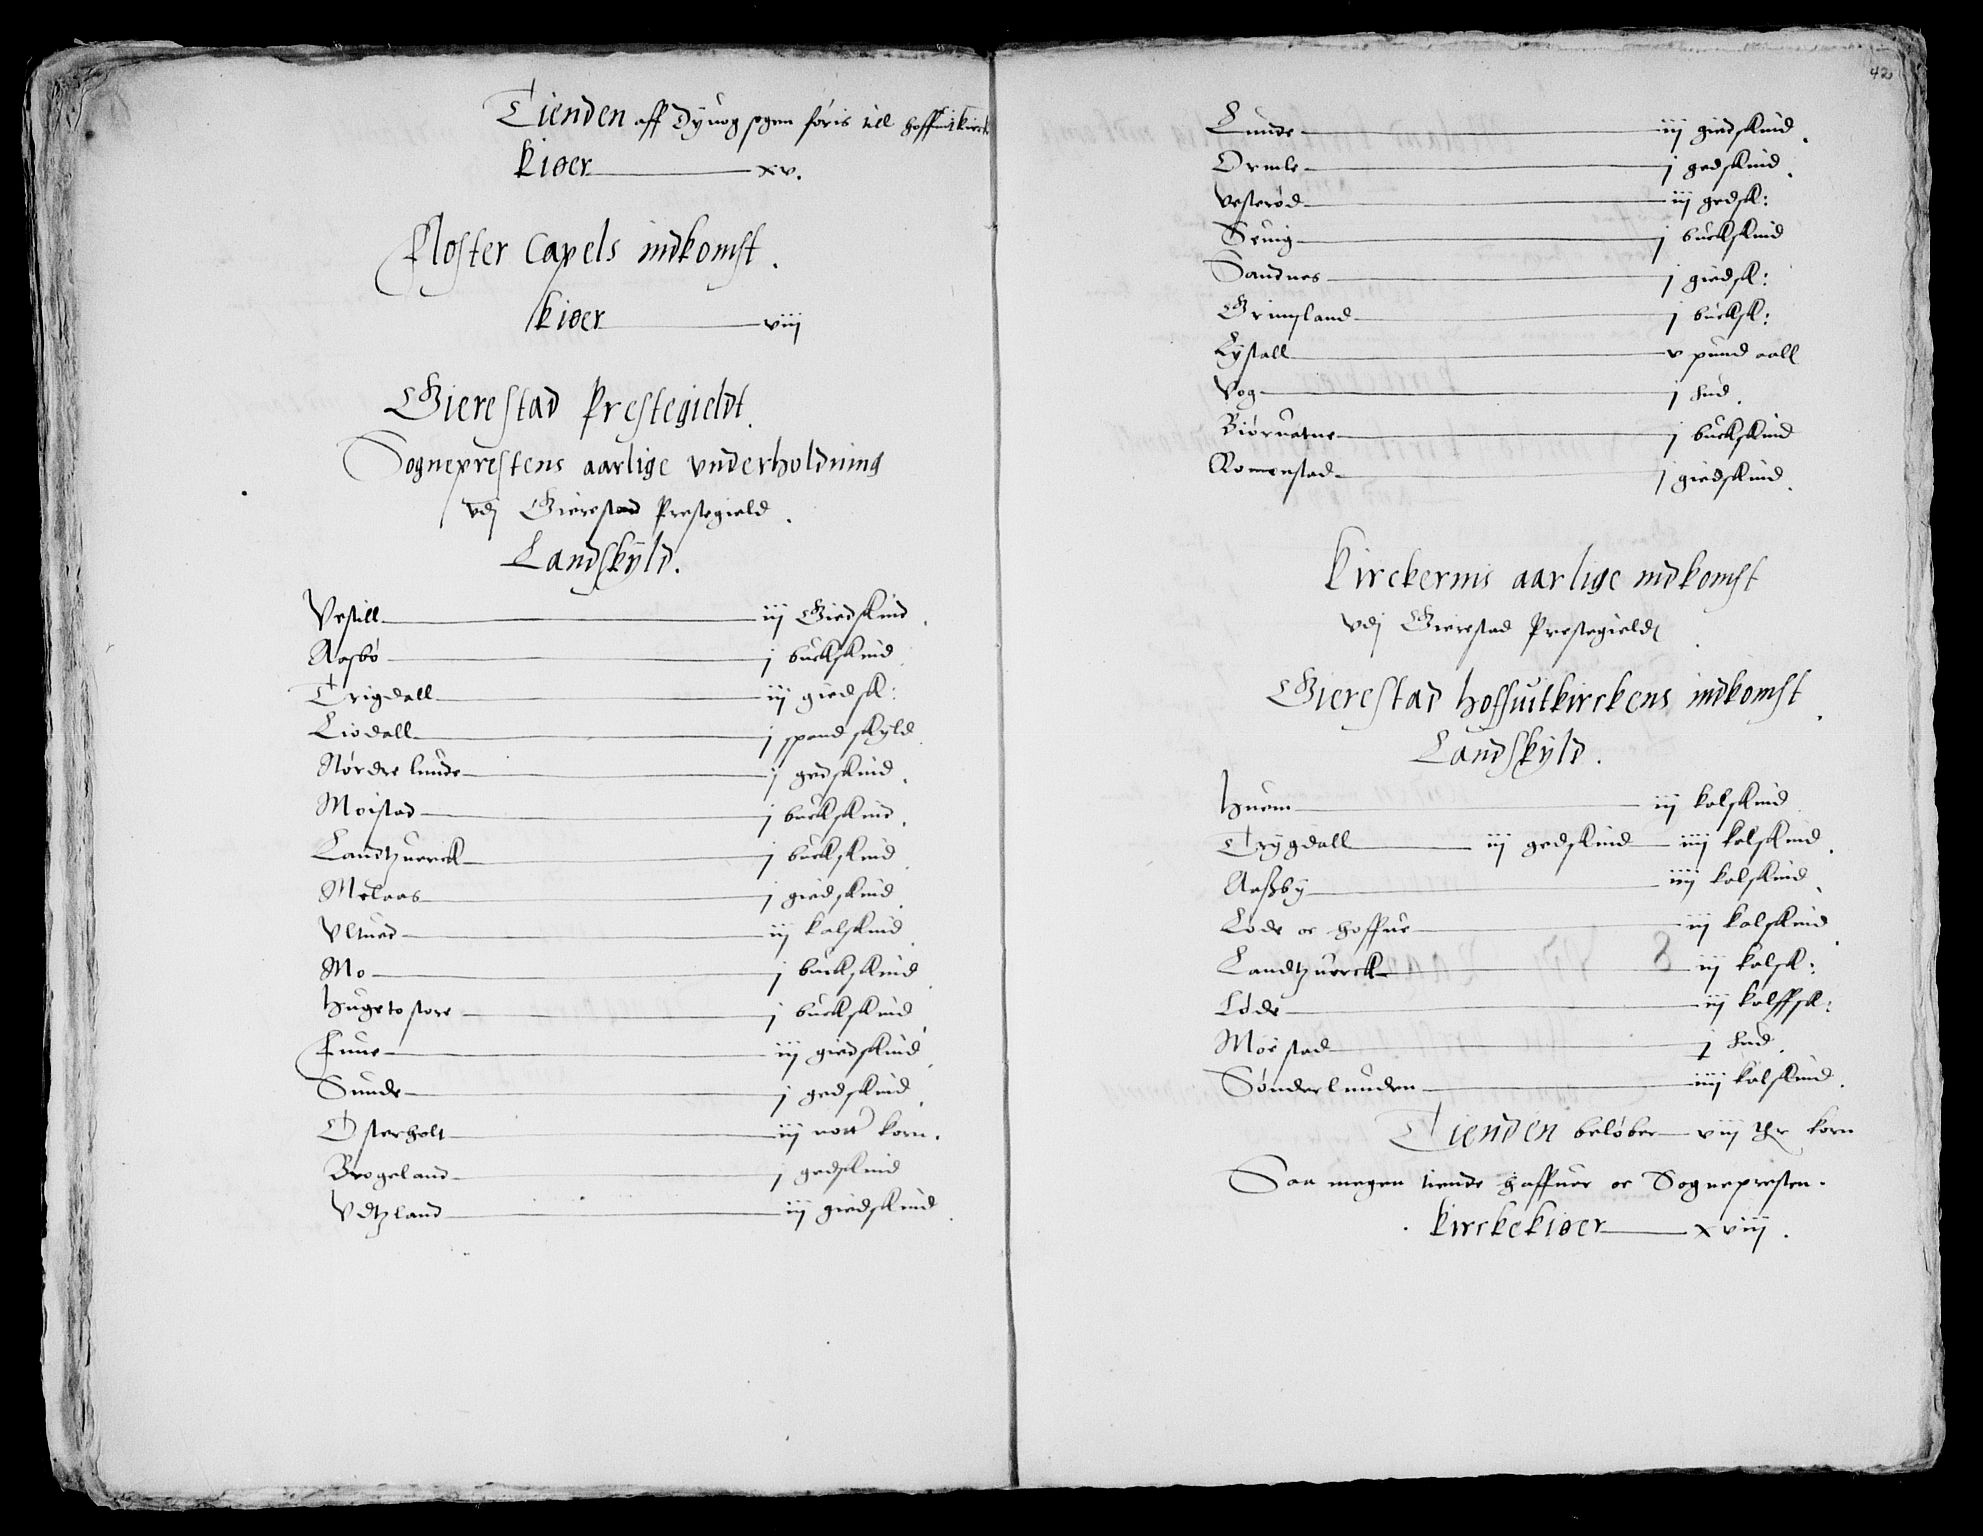 Tienden aff Dyuog sogen føris till hoffuitkirck
Kiøer xv.
Floster Capels indkomst.
Kiøer viij
Gierestad Prestegieldt.
Sogneprestens aarlige vnderholdning
vdj Gierestad Prestegield.
Landskyld.
Vestill iij Giedskind.
Aasbø j buckskind
Trigdall iij giedsk:
Liødall j spand skyld
Nørdre lunde j gedskind.
Moistad j buckskind.
Landtzuerck j buckskind
Melaas j giedskind
Vltued iij kalskind
Mo j buckskind
Hugetostore j buckskind
Fune iij giedskind
Sunde j gedskind
Østerholt iij nott korn.
Brogeland j gedskind
Vdtzland iij giedskind
42
Lunde iij giedskind.
Ormle j gedskind.
Vesterød iij gedsk:
Seuig j buckskind
Sandnes j giedsk:
Grimsland j bucksk:
Lystall v pund aall
Vog j hud.
Biøruatne j buckskind
Romenstad j giedskind.
Kirckernis aarlige indkomst
vdj Gierestad Prestegield
Gierestad hoffuitkirckens indkomst.
Landskyld.
Huem iij kalskind
Trygdall iij gedskind iiij kalskind.
Aasby iiij kalskind
Løde oc hoffue iij kalskind
Landtzuerck iij kalsk:
Løde iij kalffsk:
Moistad j hud.
Sønderlunden iiij kalskind.
Tienden beløber viij thr korn
Saa megen tiende haffuer oc Sognepresten.
Kirckekiøer xviij.